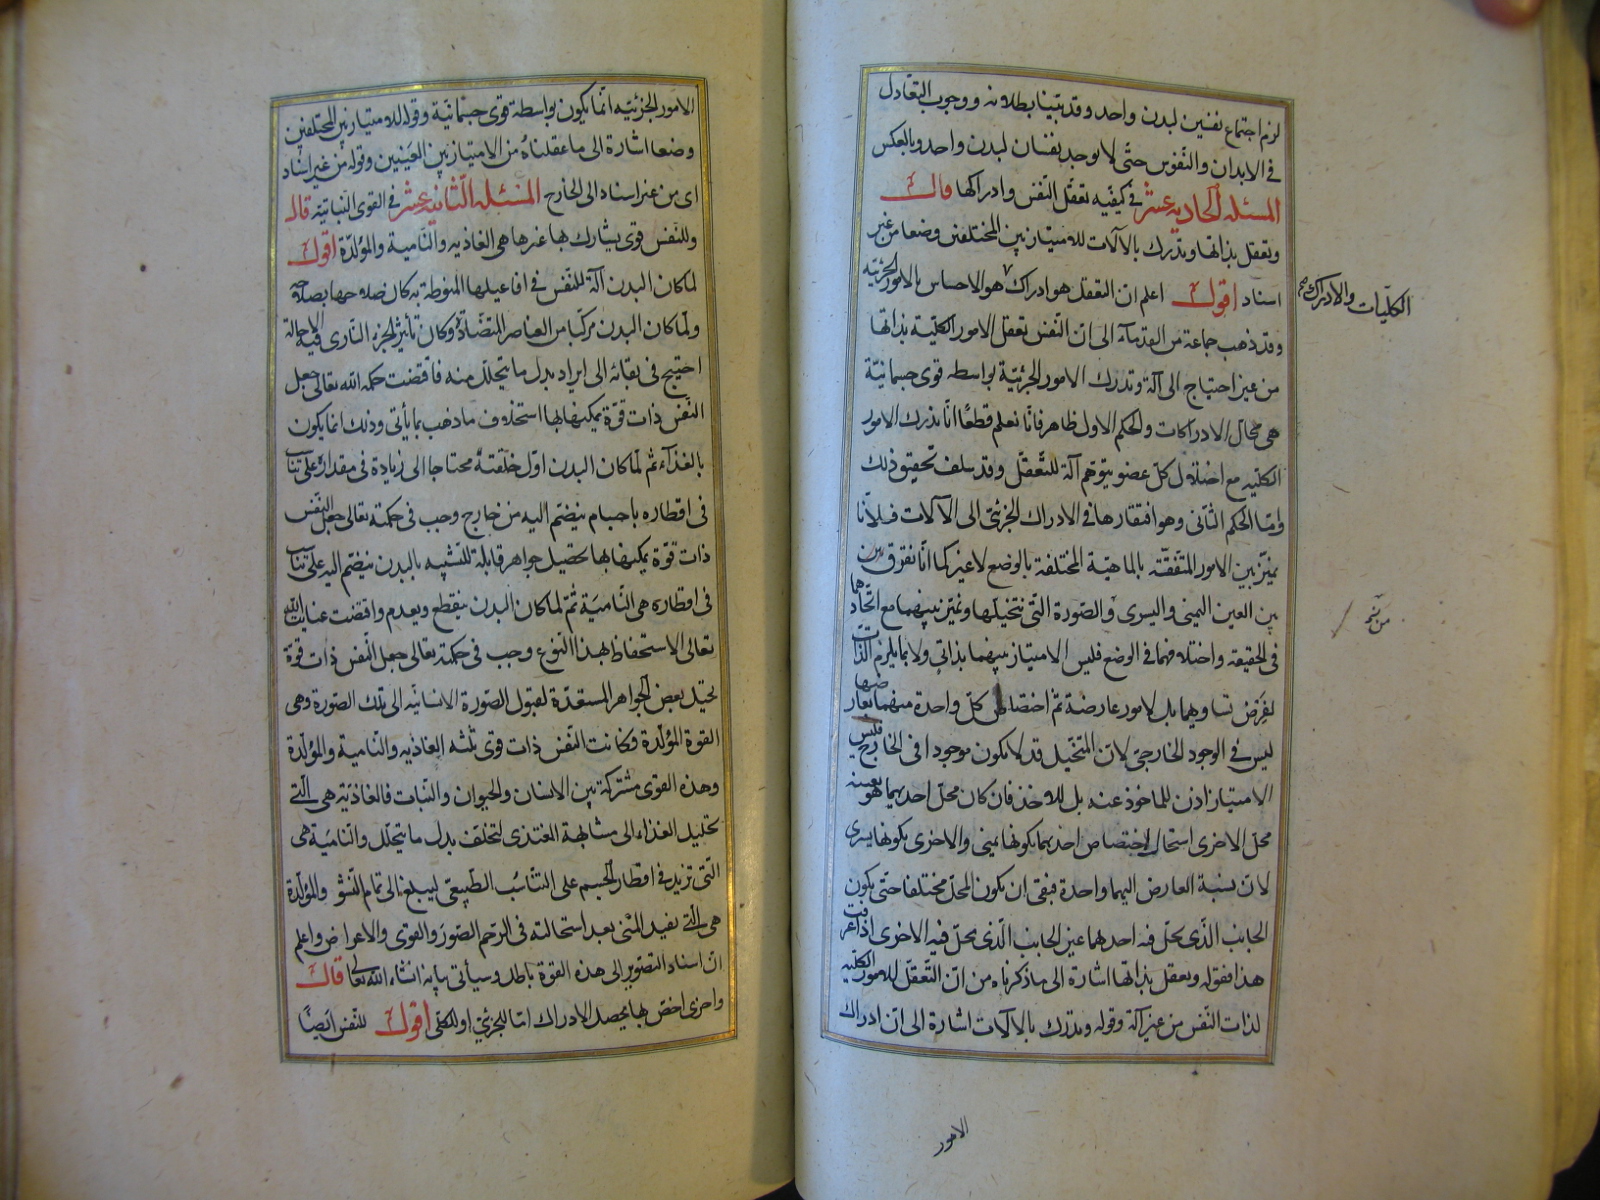 لزم اجتماع نفسين لبدن واحد وقد بينا بطلانه ووجوب التعادل
في الابدان والنفوس حتى لا يوجد نفسان لبدن واحد وبالعكس
المسئلة الحادية عشر في كيفية تعقل النفس وادراكها قال
وتعقل بذاتها وتدرك بالآلات للامتياز بين المختلفين وضعا من غير
اسناد اقول اعلم ان التعقل هو ادراك هو الاحساس بالامور الجزئية
الكليات والادراك
وقد ذهب جماعة من القدماء الى ان النفس تعقل الامور الكلية بذاتها
من غير احتياج الى آلة وتدرك الامور الجزئية بواسطه قوى جسمانية
هي محال الادراكات والحكم الاول ظاهر فانا نعلم قطعا انا ندرك الامور
الكلية مع اختلال كل عضو يتوهم آلة للتعقل وقد سلف تحقيق ذلك
واما الحكم الثاني وهو افتقارها في الادراك الجزئي الى الآلات فلانا
نميز بين الامور المتفقة بالماهية المختلفة بالوضع لا غير كما انا نفرق بين
بين العين اليمنى واليسرى والصورة التي نتخيلها ونميز بينهما مع اتحادهما
في الحقيقة واختلافهما في الوضع فليس الامتياز بينهما بذاتي ولا بما يلزم الذات
لفرض تساويهما بل لامور عارضة ثم اختصاص كل واحدة منهما بعارضها
ليس في الوجود الخارجي لان المتخيل قد لا يكون موجودا في الخارج فليس
الامتياز اذن للماخوذ عنه بل للاخذ فان كان محل احديهما هو بعينه
محل الاخرى استحال اختصاص احديهما بكونها يمنى والاخرى بكونها يسرى
لان نسبة العارض اليهما واحدة فبقى ان يكون المحل مختلفا حتى يكون
الجانب الذي يحل فيه احدهما غير الجانب الذي يحل فيه الاخرى اذا عرفت
هذا فقوله وتعقل بذاتها اشارة الى ما ذكرناه من ان التعقل للامور الكلية
لذات النفس من غير آلة وقوله وتدرك بالآلات اشارة الى ان ادراك
الامور
الامور الجزئية انما يكون بواسطة قوى جسمانية وقوله للامتياز بين المختلفين
وضعا اشارة الى ما عقلناه من الامتياز بين العينين وقوله من غير اسناد
اى من غير اسناد الى الخارج المسئلة الثانية عشر في القوى النباتية قال
وللنفس قوى يشارك بها غيرها هي الغاذيه والنامية والمولدة اقول
لما كان البدن آلة للنفس في افاعيلها المنوطة به كان صلاحها بصلاحه
ولما كان البدن مركبا من العناصر المتضادة وكان تاثير الجزء النارى فيه الاحالة
احتيج في بقائه الى ايراد بدل ما يتحلل منه فاقضت حكمة الله تعالى جعل
النفس ذات قوة يمكنها بها استخلاف ما ذهب بما يأتى وذلك انما يكون
بالغذاء ثم لما كان البدن اول خلقته محتاجا الى زيادة في مقداره على تناسب
في اقطاره باجسام ينضم اليه من خارج وجب في حكمته تعالى جعل النفس
ذات قوة يمكنها بها تحصيل جواهر قابلة للتشبه بالبدن ينضم اليه على تناسب
في اقطاره هي النامية ثم لما كان البدن ينقطع ويعدم واقتضت عناية الله
تعالى الاستحفاظ بهذا النوع وجب في حكمته تعالى جعل النفس ذات قوة
تحيل بعض الجواهر المستعدة لقبول الصورة الانسانية الى تلك الصورة وهى
القوة المولدة وكانت النفس ذات قوى ثلثه الغاذيه والنامية والمولدة
وهذه القوى مشتركة بين الانسان والحيوان والنبات فالغاذية هي التى
تحيل الغذاء الى مشابهة المغتذى لتخلف بدل ما يتحلل والنامية هي
التى تزيد في اقطار الجسم على التناسب الطبيعى ليبلغ الى تمام النشو والمولدة
هي التى تفيد المنى بعد استحالته في الرحم الصور والقوى والاعراض واعلم
ان اسناد التصوير الى هذه القوة باطل وسيأتى بيانه انشاء الله تعالى قال
واخرى اخص بها يحصل الادراك اما للجزئى او للكلى اقول للنفس ايضا